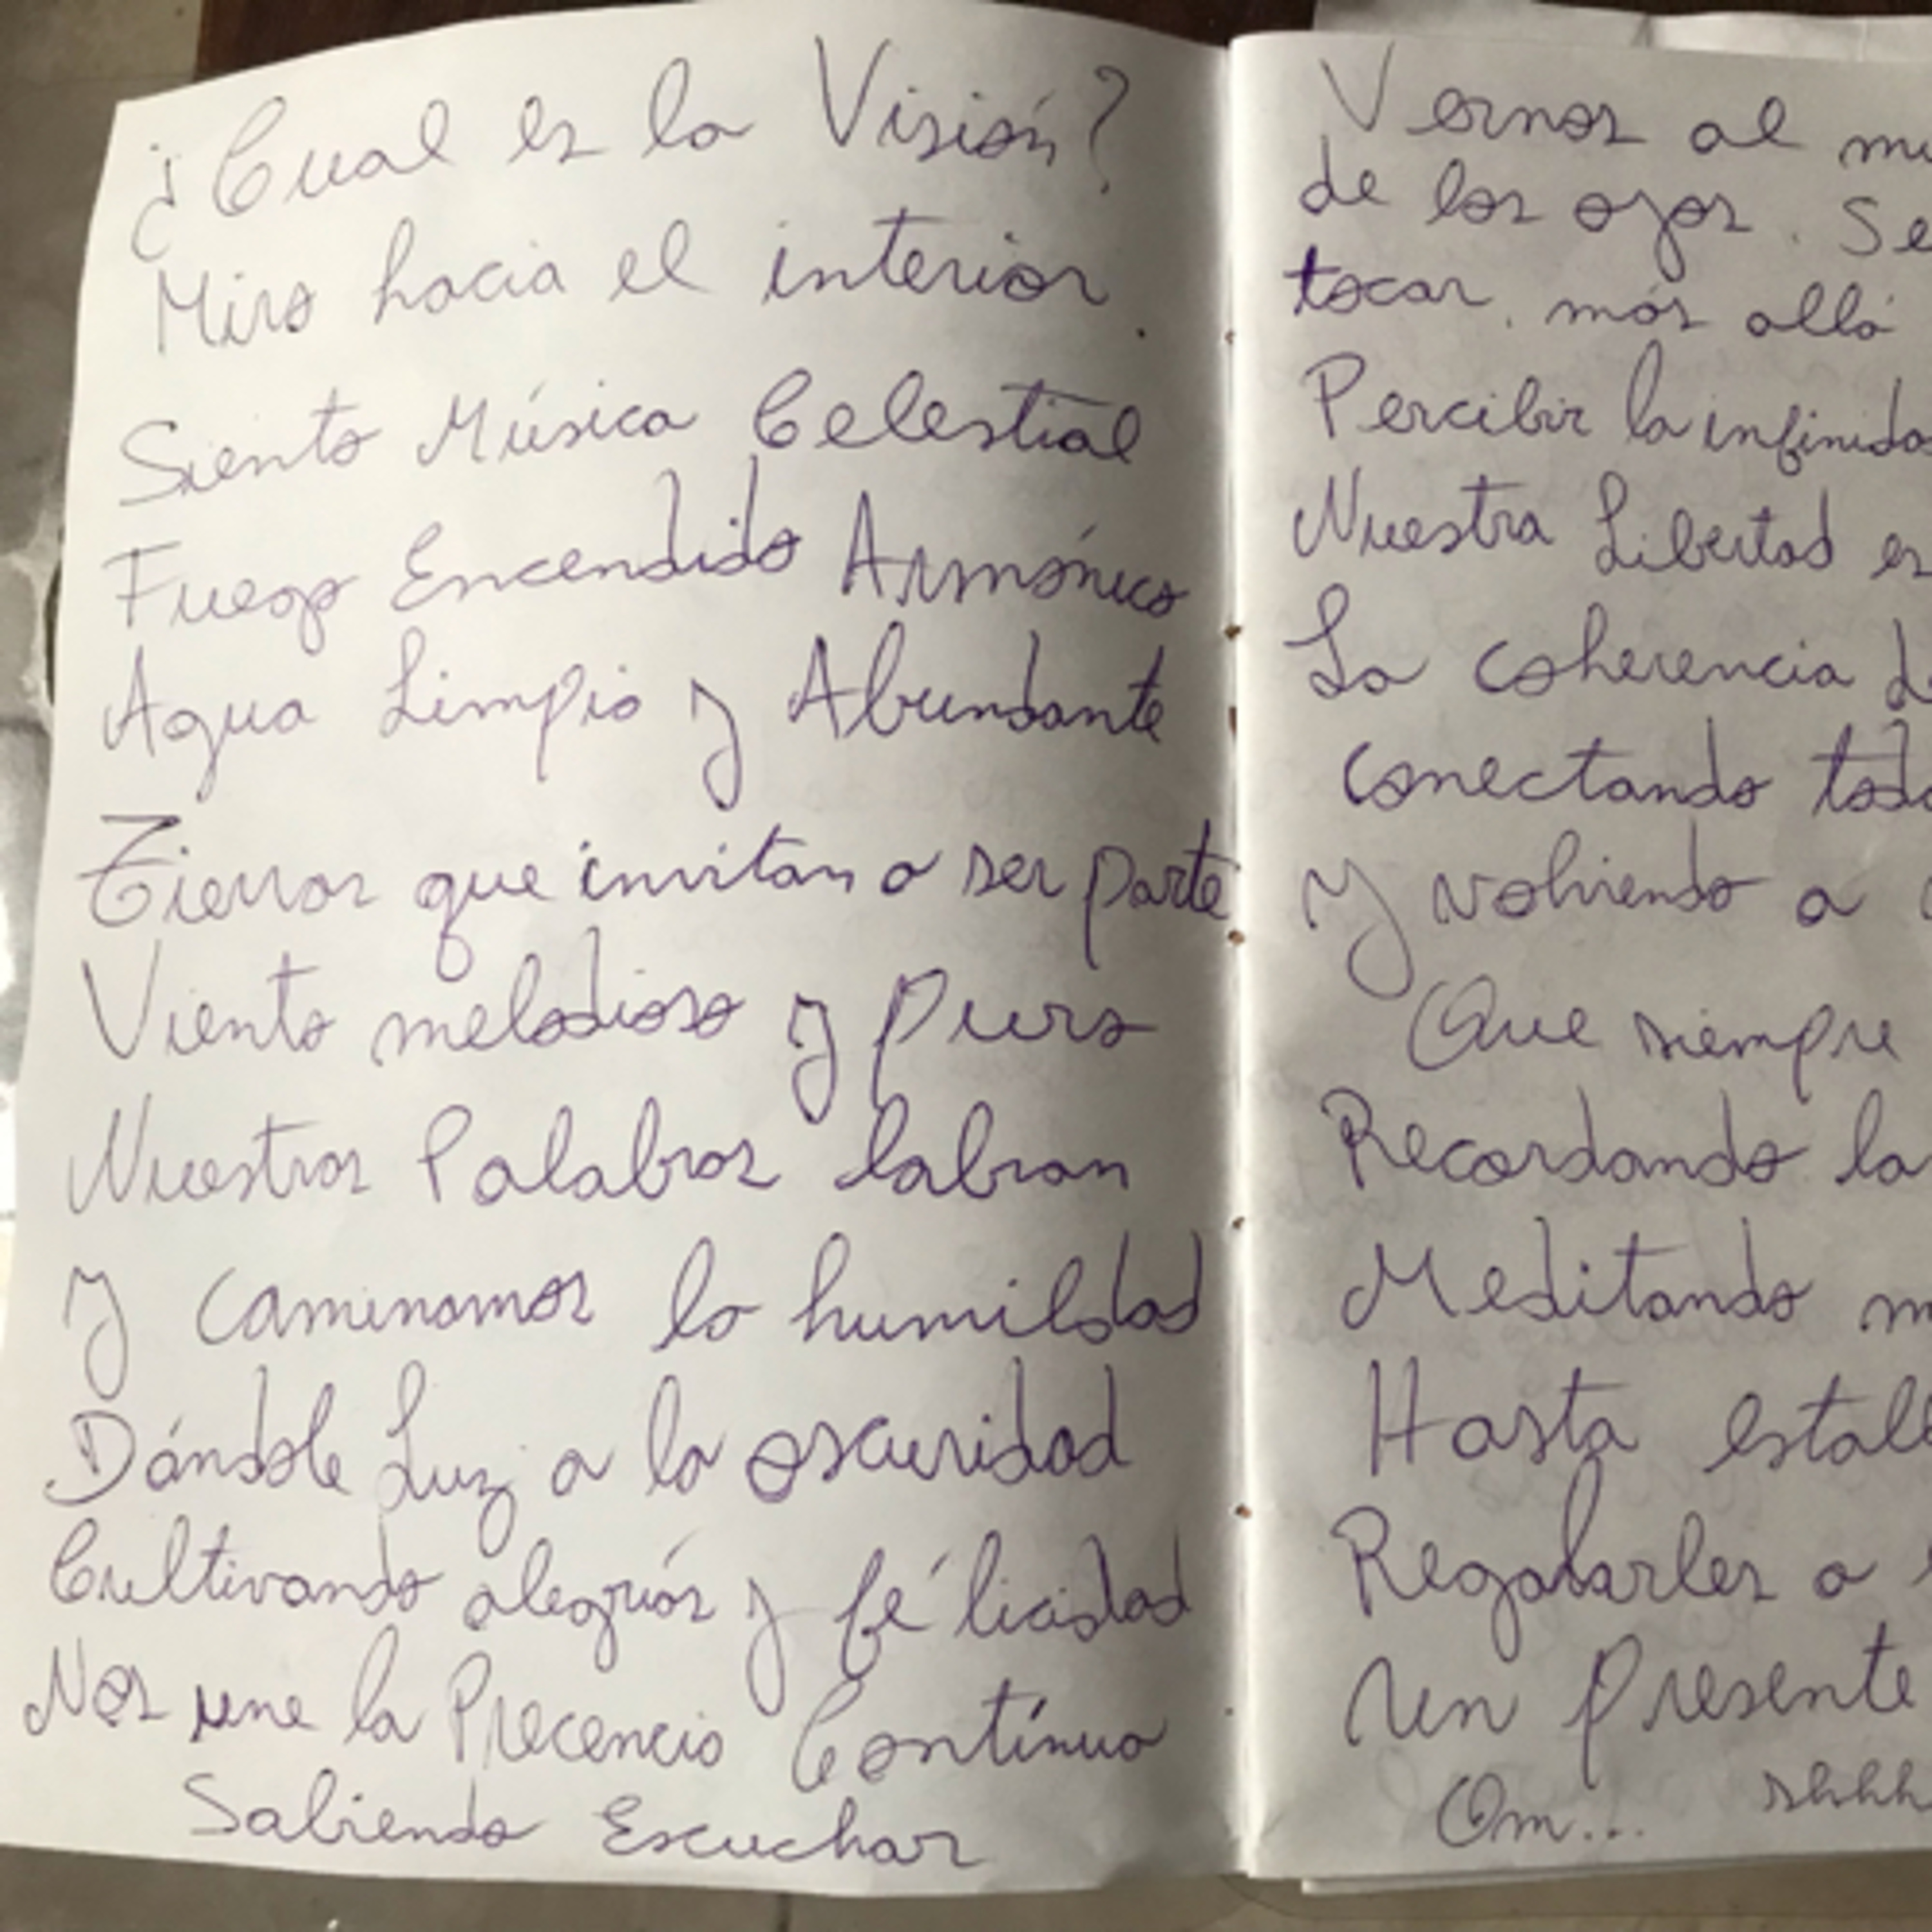 ¿Cual es la Visión?
Miro hacia el interior.
Siento Música Celestial
Fuego Encendido Armónico
Agua Limpia y Abundante
Tierras que invitan a ser parte
Viento melodioso y Puro
Nuestras Palabras labran
y caminamos la humildad
Dándole Luz a la oscuridad
Cultivando alegrías y fé licidad
Nos une la Precencia Contínua
Sabiendo Escuchar
Vernos al
de los ojos. Se
tocar. más allá
Percibir la
Nuestra Libertad es
La coherencia
conectando
y volviendo a
Que siempre
Recordando
Meditando
Hasta
Regalarles a
Un Presente
Om...